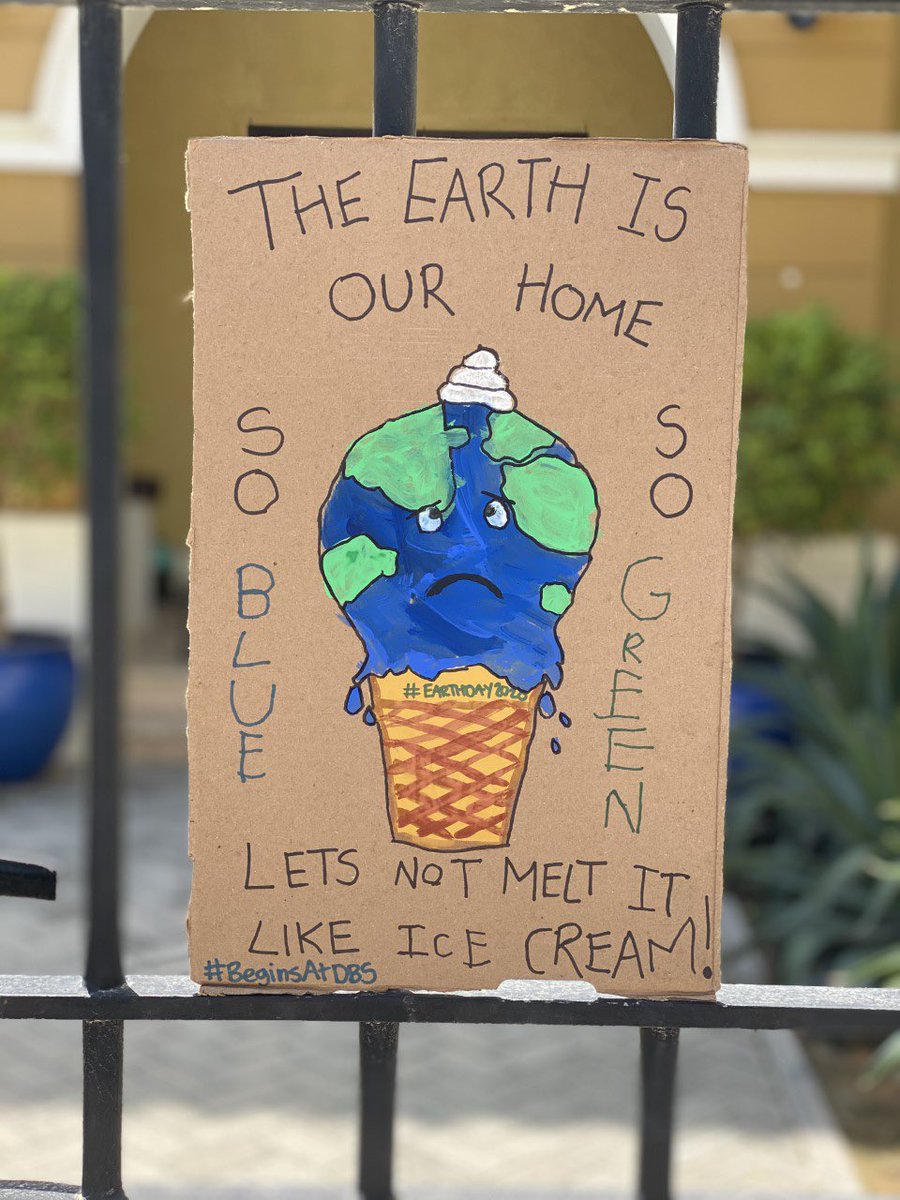 THE EARTH IS
OUR HOME
SO BLUE
SO GREEN
#EARTHDAY2020
LETS NOT MELT IT
LIKE ICE CREAM!
#BeginsAtDBS